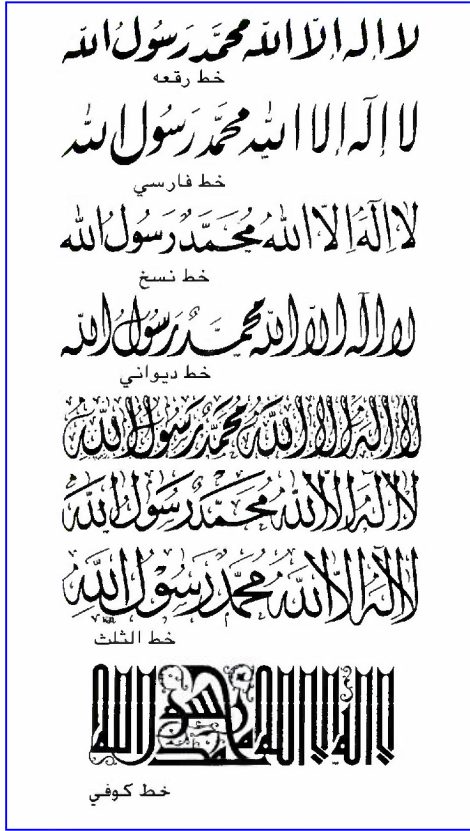 لا اله الا الله محمد رسول الله
خط رقعه
لا إله إلا الله محمد رسول الله
خط فارسي
لا اله الا الله محمد رسول الله
خط نسخ
لا اله الا الله محمد رسول الله
خط ديواني
لا اله الا الله محمد رسول الله
لا اله الا الله محمد رسول الله
لا اله الا الله محمد رسول الله
خط الثلث
لا اله الا الله محمد رسول الله
خط كوفي